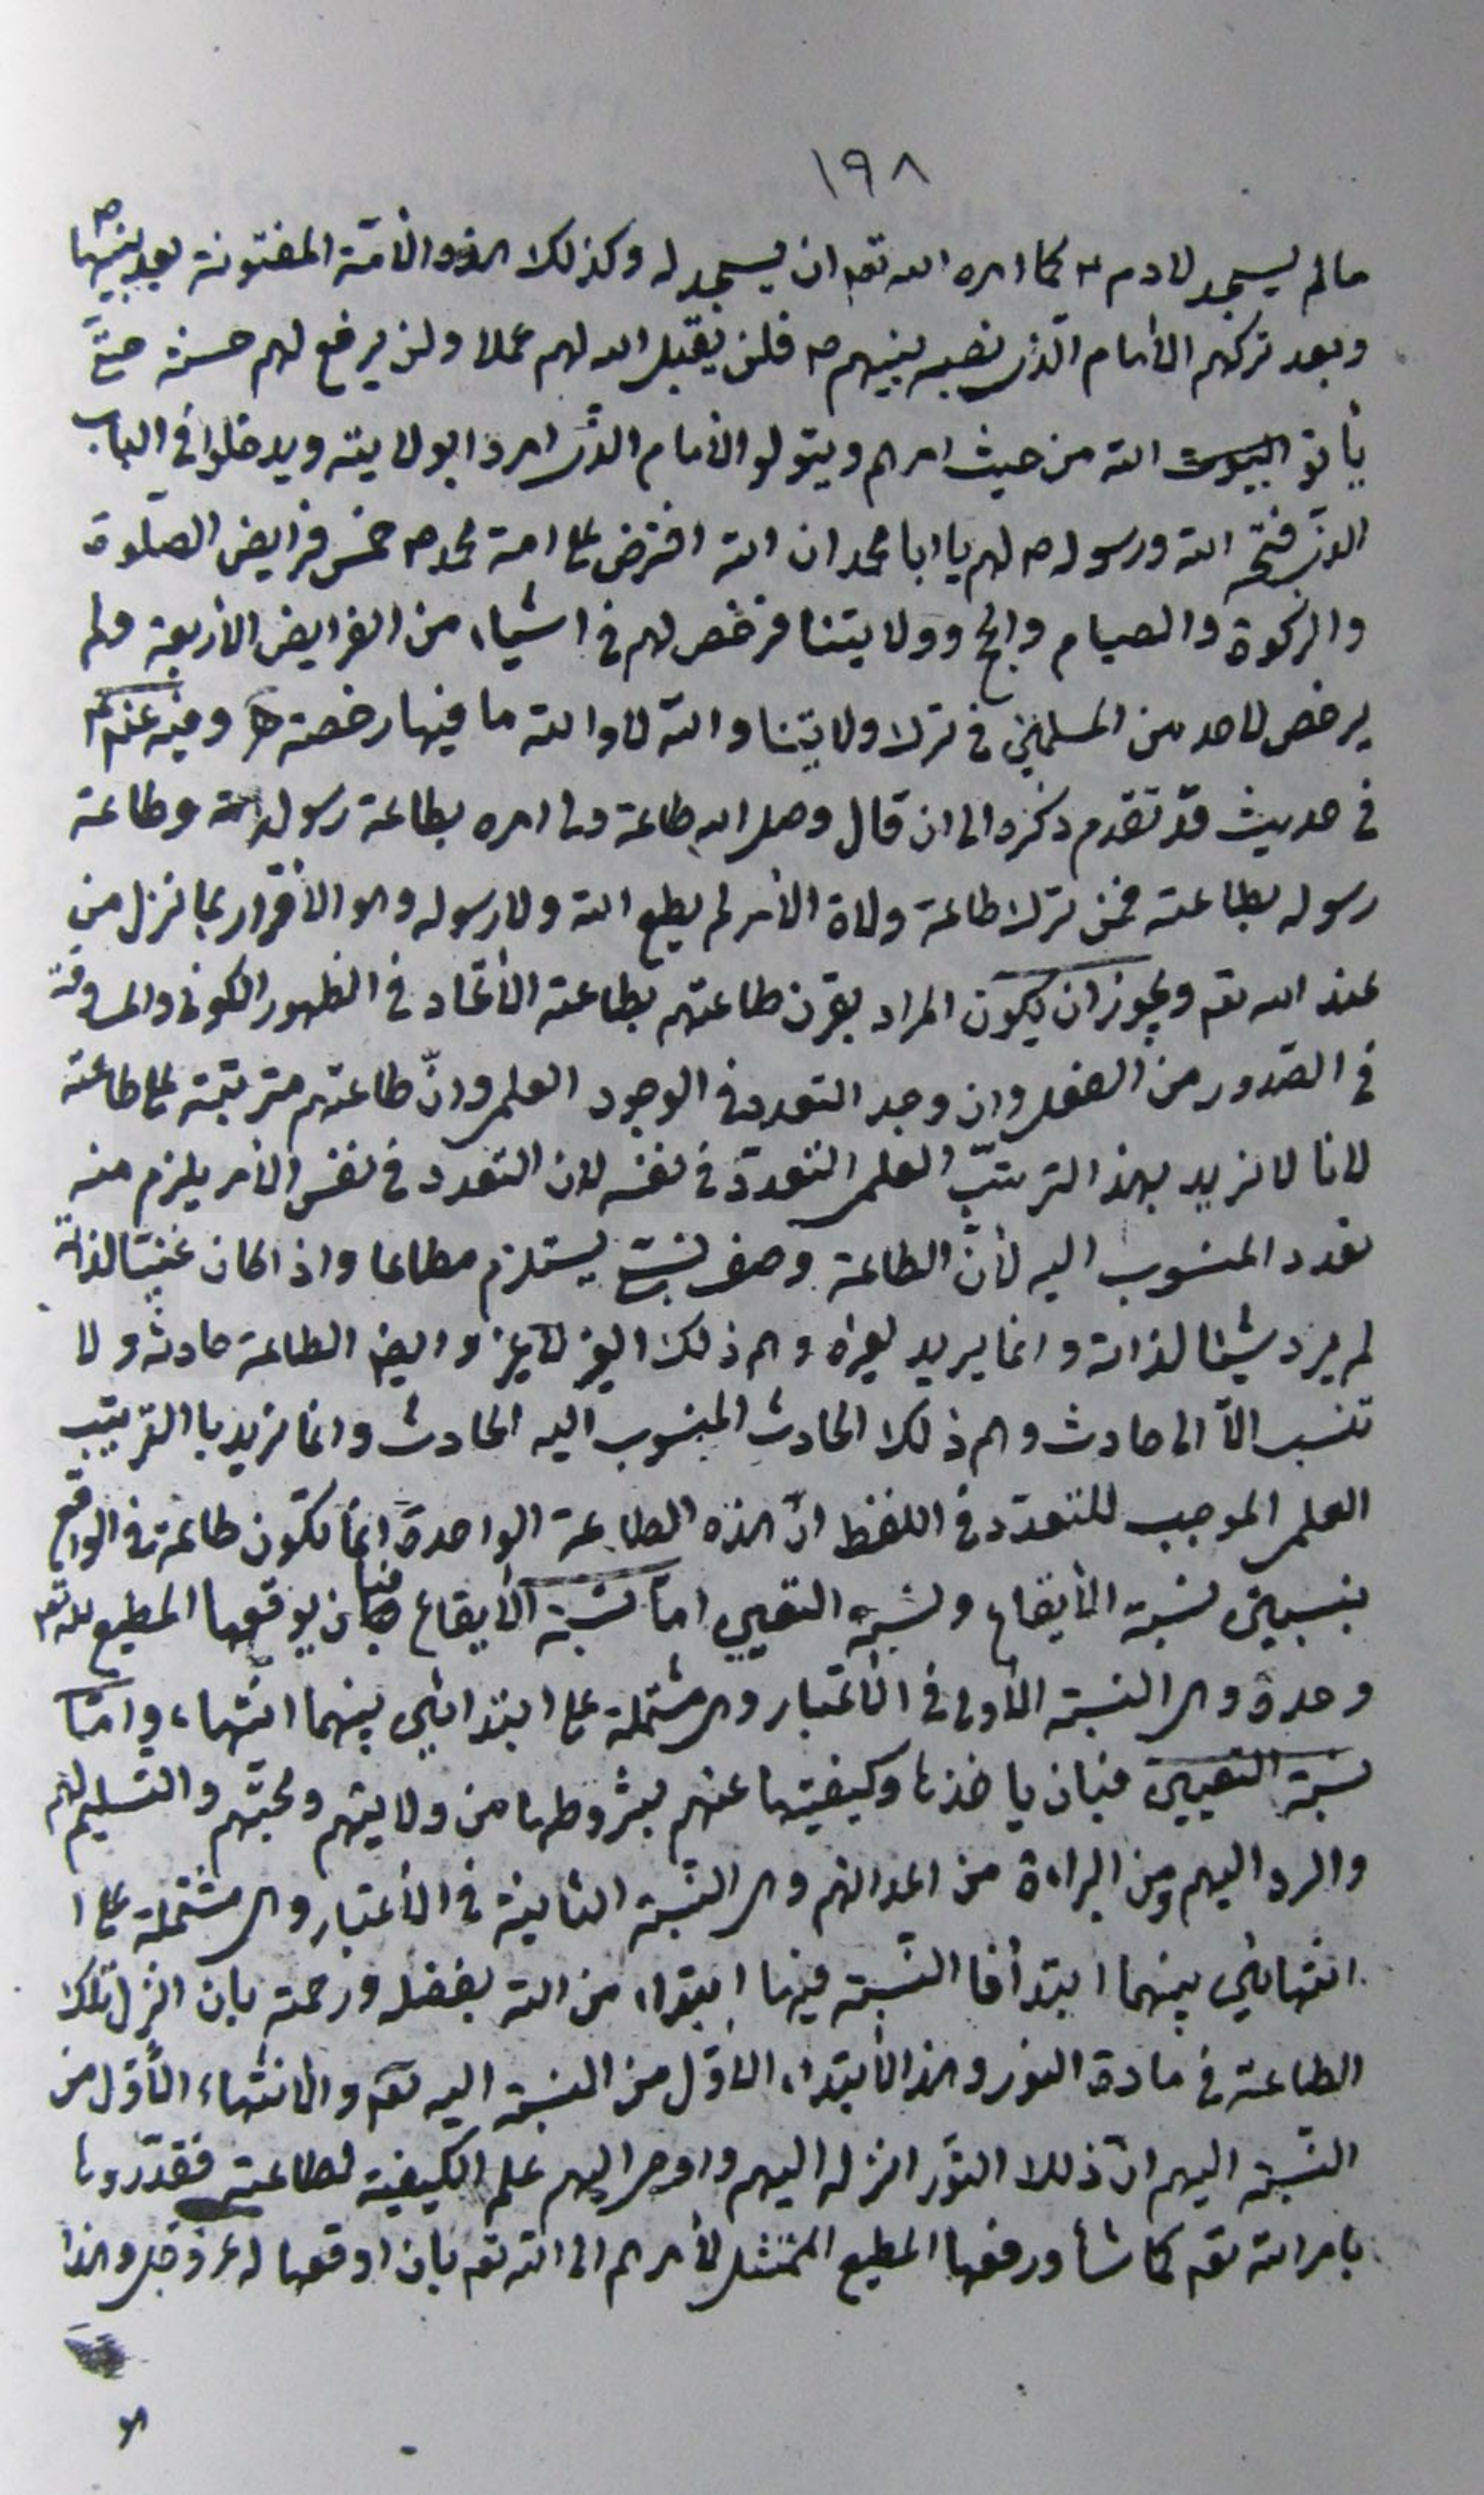 ١٩٨
ما لم يسجد لادم ع كما امره الله تعه ان يسجد له وكذلك هذه الأمّة المفتونة بعد نبيّها ص
وبعد تركهم الأمام الّذى نصبه نبيهم ص فلن يقبل الله لهم عملا ولن يرفع لهم حسنة حتّى
يأتو البيوت الله من حيث امرهم ويتولو الأمام الذى امروا بولايته ويدخلوا فى الباب
الذى فتحه الله ورسوله ص لهم يا ابا محمد ان الله افترض على امة محمد ص خمس فرايض الصلوة
والزكوة والصيام والحج وولايتنا فرخص لهم فى اشياء من الفرايض الأربعة ولم
يرخص لاحد من المسلمين فى ترك ولايتنا والله لا والله ما فيها رخصة وفيه عنهم
فى حديث قد تقدم ذكره الى ان قال وصل الله طاعة ولى امره بطاعة رسوله وطاعة
رسوله بطاعته فمن ترك طاعة ولاة الأمر لم يطع الله ولا رسوله وهو الأقرار بما نزل من
عند الله تعه ويجوز ان يكون المراد بقرن طاعتهم بطاعته الأتحاد فى الظهور الكونى والمساوقة
فى الصّدور من الفعل وان وجد التعدد فى الوجود العلمى وانّ طاعتهم مترتبة على طاعته
لانا لا نريد بهذا الترتّب العلمى التعدد فى نفسه لان التعدد فى نفس الأمر يلزم منه
تعدد المنسوب اليه لأنّ الطاعة وصف نسبىّ يستلزم مطاعا واذا كان غنيّا لذاته
لم يرد شيئا لذاته وانما يريد لغيره وهم ذلك الغير لا غير وايضا الطاعة حادثة ولا
تنسب الّا الى حادث وهم ذلك الحادث المنسوب اليه الحادث وانما نريد با الترتيب
العلمى الموجب للتعدّد فى اللفظ انّ هذه الطاعة الواحدة انما تكون طاعة فى الواقع
بنسبتين نسبة الأيقاع ونسبة التعيين امّا نسبة الأيقاع فبان يوقعها المطيع لله تعه
وحده وهى النسبة الأولى فى الأعتبار وهى مشتملة على ابتدائين بينهما انتهاء، وامّا
نسبة التعيين فبان ياخذها وكيفيتها عنهم بشروطها من ولايتهم ومحبّتهم والتسليم لهم
والرد اليهم ومن البراءة من اعدائهم وهى النّسبة الثانية فى الأعتبار وهى مشتملة على ا
انتهائين بينهما ابتدأ فا النّسبة فيها ابتداء من الله بفضله ورحمته بان انزل تلك
الطاعة فى مادة النور وهذا الأبتداء الأوّل من النسبة اليه تعه والأنتهاء الأوّل من
النّسبة اليهم انّ ذلك النّور انزله اليهم واوحى اليهم علم الكيفية لطاعته فقدّروها
بامر الله تعه كما شأ ورفعها المطيع الممتثل لأمرهم الى الله تعه بان اوقعها له عز وجل وهذا